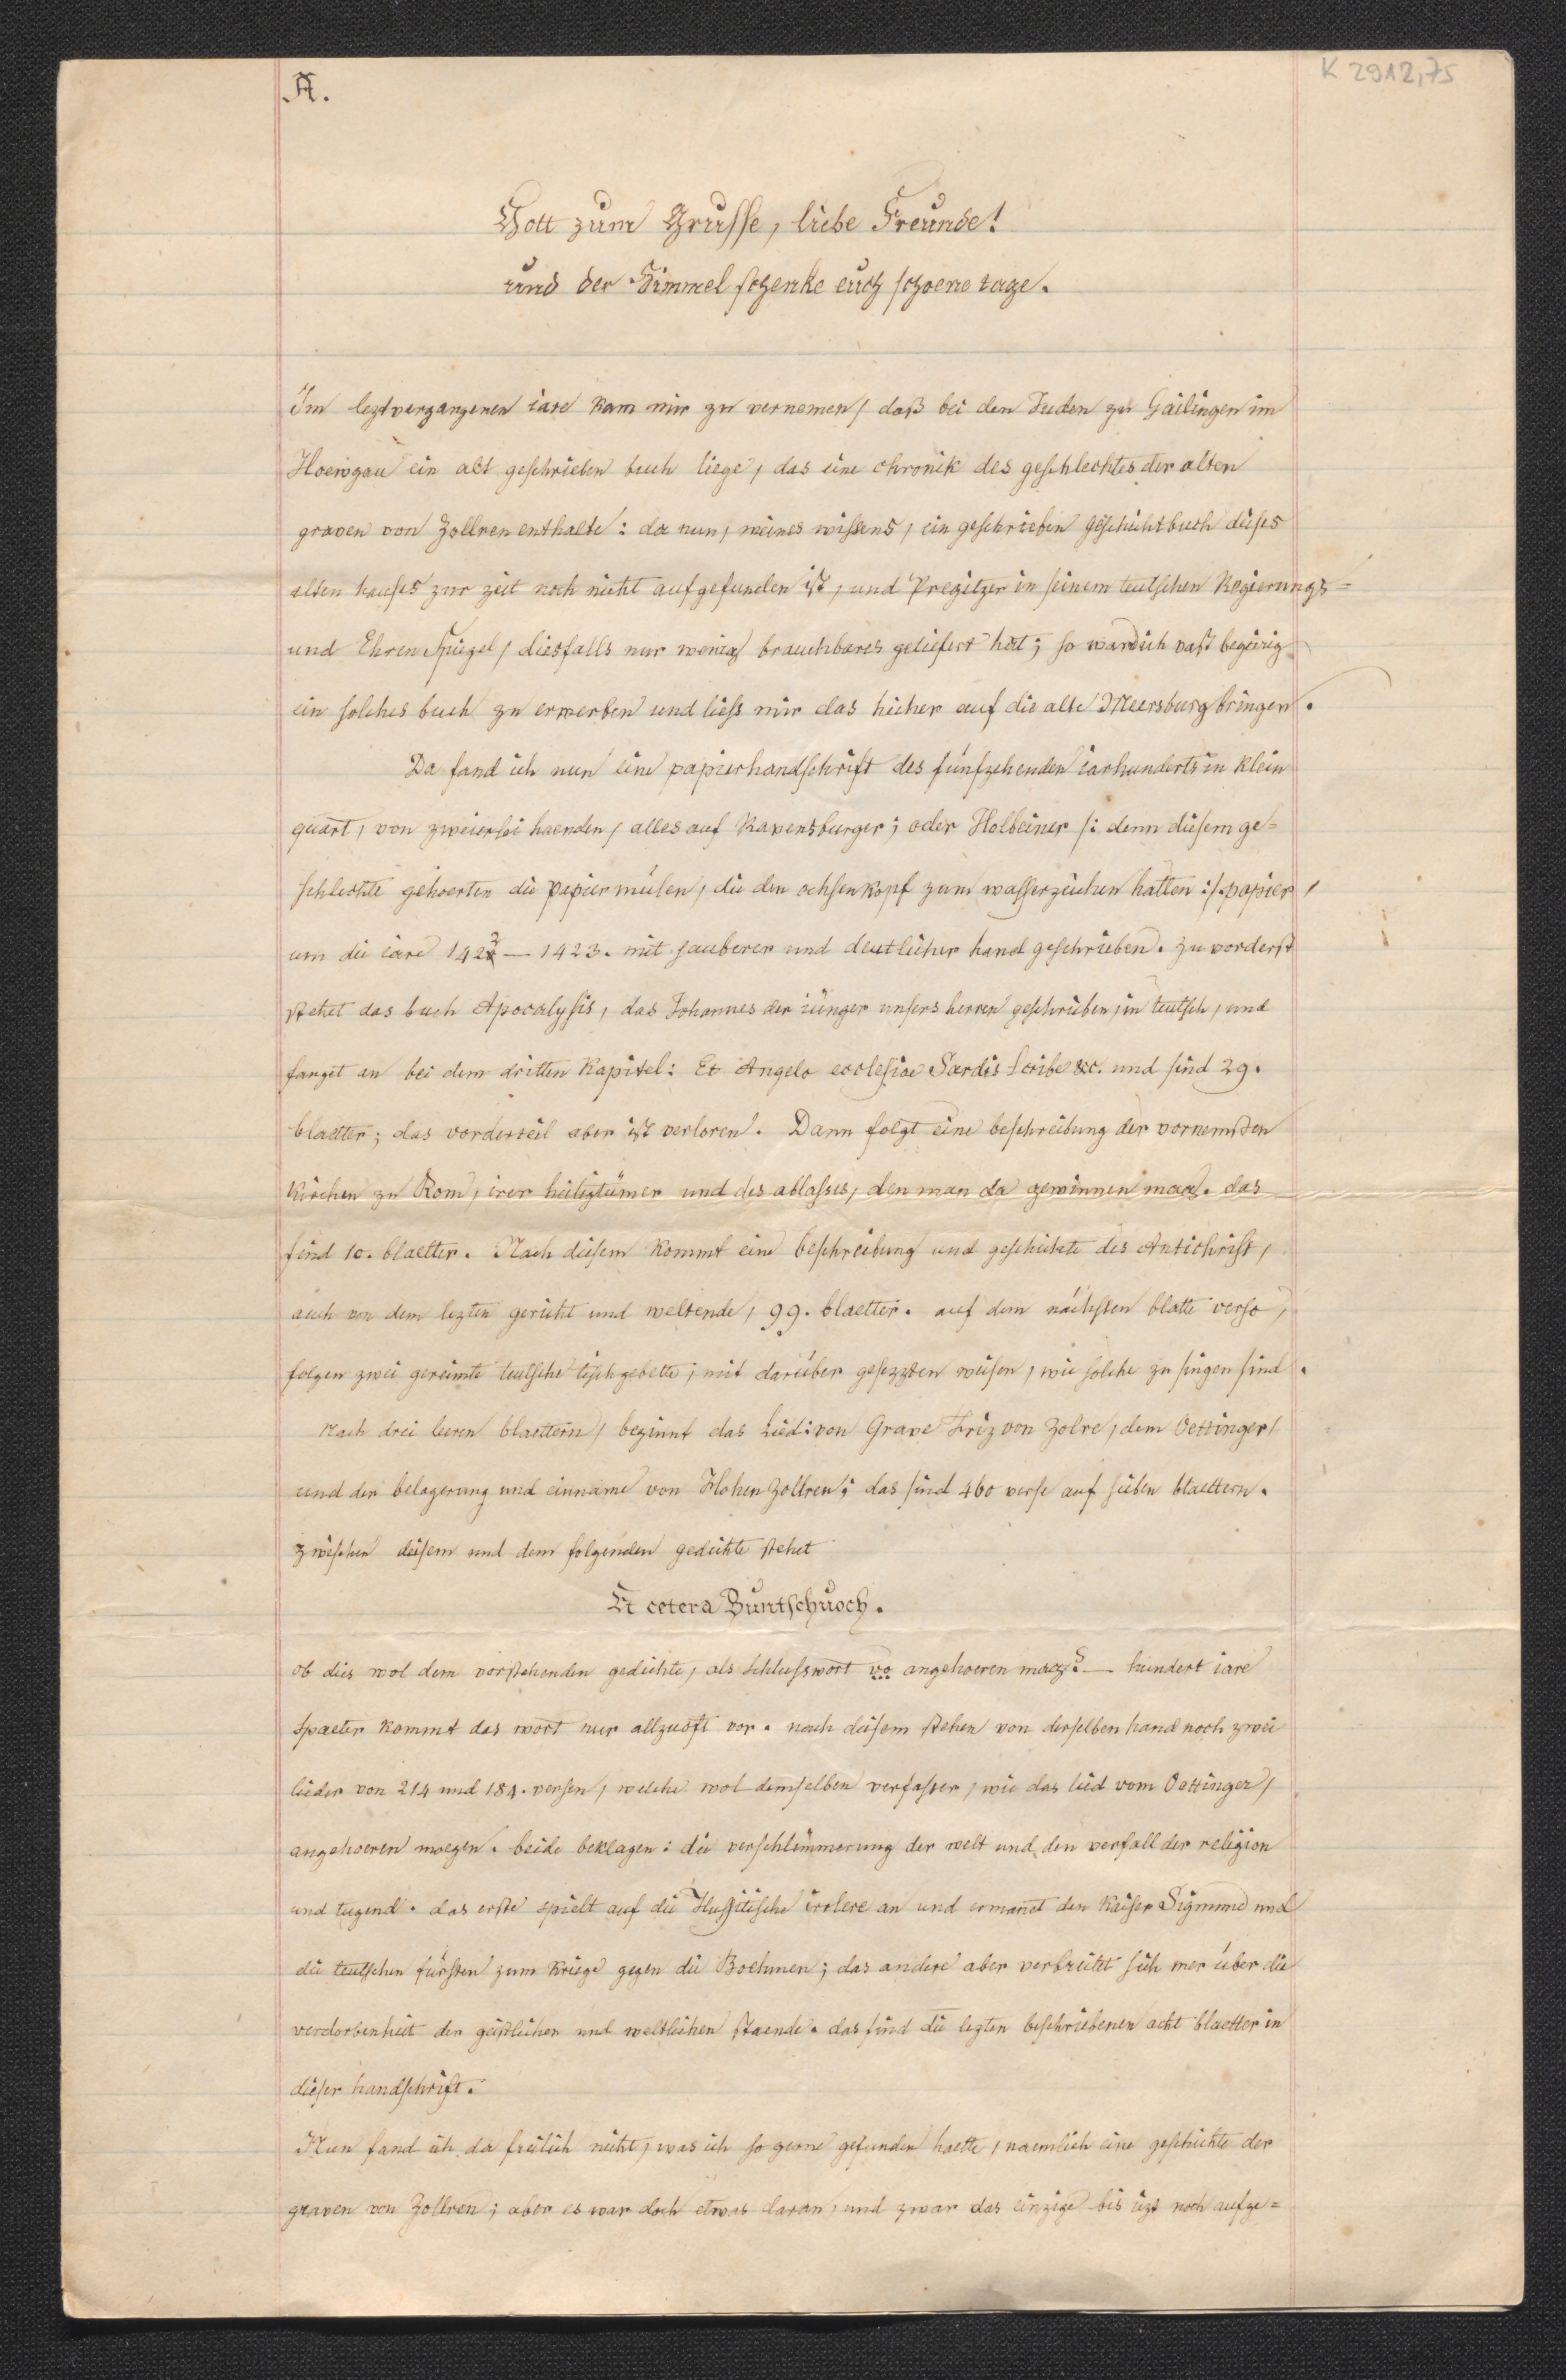 A.
K 2912,75
Gott zum Grusse, liebe Freunde!
und der Himmel schenke euch schoene tage.
Im leztvergangenen iare kam mir zu vernemen, daß bei den Juden zu Gailingen im
Hoewgau ein alt geschrieben buch liege, das eine chronik des geschlechtes der alten
graven von Zollren enthalte: da nun, meines wissens, ein geschrieben geschichtbuch dieses
alten hauses zur zeit noch nicht aufgefunden ist, und Pregitzer in seinem teutschen Regierungs-
und Ehren Spiegel, diesfalls nur wenig brauchbares geliefert hat; so ward ich vast begirig
ein solches buch zu erwerben und liess mir das hieher auf die alte Meersburg bringen.
Da fand ich nun eine papierhandschrift des fünfzehenden iarhunderts in klein
quart, von zweierlei haenden, alles auf Ravensburger; oder Holbeiner /: denn diesem ge-
schlechte gehoerten die papiermülen, die den ochsenkopf zum wasserzeichen hatten :/ papier,
um die iare 1422 — 1423. mit sauberer und deutlicher hand geschrieben. zu vorderst
stehet das buch Apocalysis, das Johannes der iünger unsers herren geschrieben, in teutsch, und
fanget an bei dem dritten Kapitel: Et Angelo ecclesiae Sardis scribe &c. und sind 29.
blaetter; das vorderteil aber ist verloren. Dann folgt eine beschreibung der vornemsten
Kirchen zu Rom, irer heiligtümer und des ablasses, den man da gewinnen mag. das
sind 10. blaetter. Nach diesem kommt eine beschreibung und geschichte des Antichrist,
auch von dem lezten gericht und weltende, 99. blaetter. auf dem nächsten blatte verso,
folgen zwei gereimte teutsche tischgebette; mit darüber gesezzten weisen, wie solche zu singen sind.
Nach drei leeren blaettern, beginnt das Lied: von Grave Friz von Zolre, dem Oettinger,
und der belagerung und einname von Hohen Zollren; das sind 460 verse auf sieben blaettern.
zwischen diesem und dem folgenden gedichte stehet
Et cetera Buntschuoch.
ob dies wol dem vorstehenden gedichte, als schlusswort vo angehoeren mag? — hundert iare
spaeter kommt das wort nur allzuoft vor. nach diesem stehen von derselben hand noch zwei
lieder von 214 und 184. versen, welche wol demselben verfasser, wie das lied vom Oettinger,
angehoeren moegen. beide beklagen: die verschlimmerung der welt und den verfall der religion
und tugend. das erste spielt auf die Hussitische irrlere an und ermanet den Kaiser Sigmund und
die teutschen fürsten zum Kriege gegen die Boehmen; das andere aber verbreitet sich mer über die
verdorbenheit der geistlichen und weltlichen staende. das sind die lezten beschriebenen acht blaetter in
dieser handschrift.
Nun fand ich da freilich nicht, was ich so gerne gefunden haette, naemlich eine geschichte der
graven von Zollren; aber es war doch etwas daran, und zwar das einzige bis iezt noch aufge-